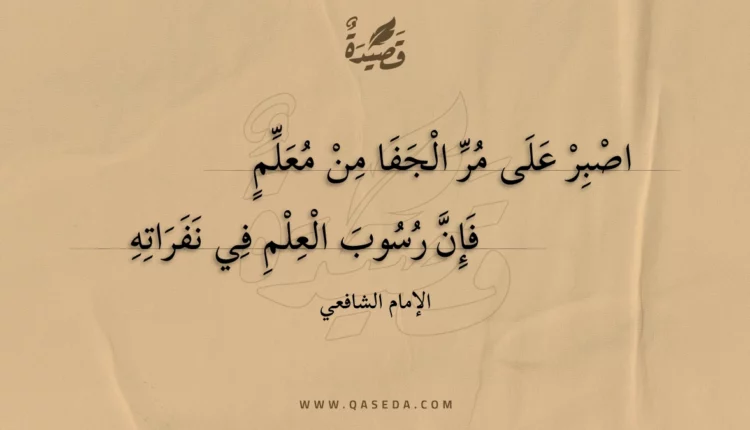 قَصِيدَةٌ
اصْبِرْ عَلَى مُرِّ الْجَفَا مِنْ مُعَلِّمٍ
فَإِنَّ رُسُوبَ الْعِلْمِ فِي نَفَرَاتِهِ
الإمام الشافعي
WWW.QASEDA.COM